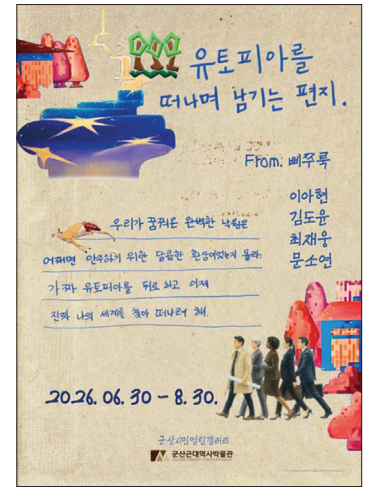 유토피아를
떠나며 남기는 편지.
From. 삐쭈룩
이아현
김도윤
최재웅
문소연
우리가 꿈꿔온 완벽한 낙원은
어쩌면 안주하기 위한 달콤한 환상이었는지 몰라.
가짜 유토피아를 뒤로 하고 이제
진짜 나의 세계를 찾아 떠나려 해.
2026. 06. 30 - 8. 30.
군산시민열린갤러리
군산근대역사박물관